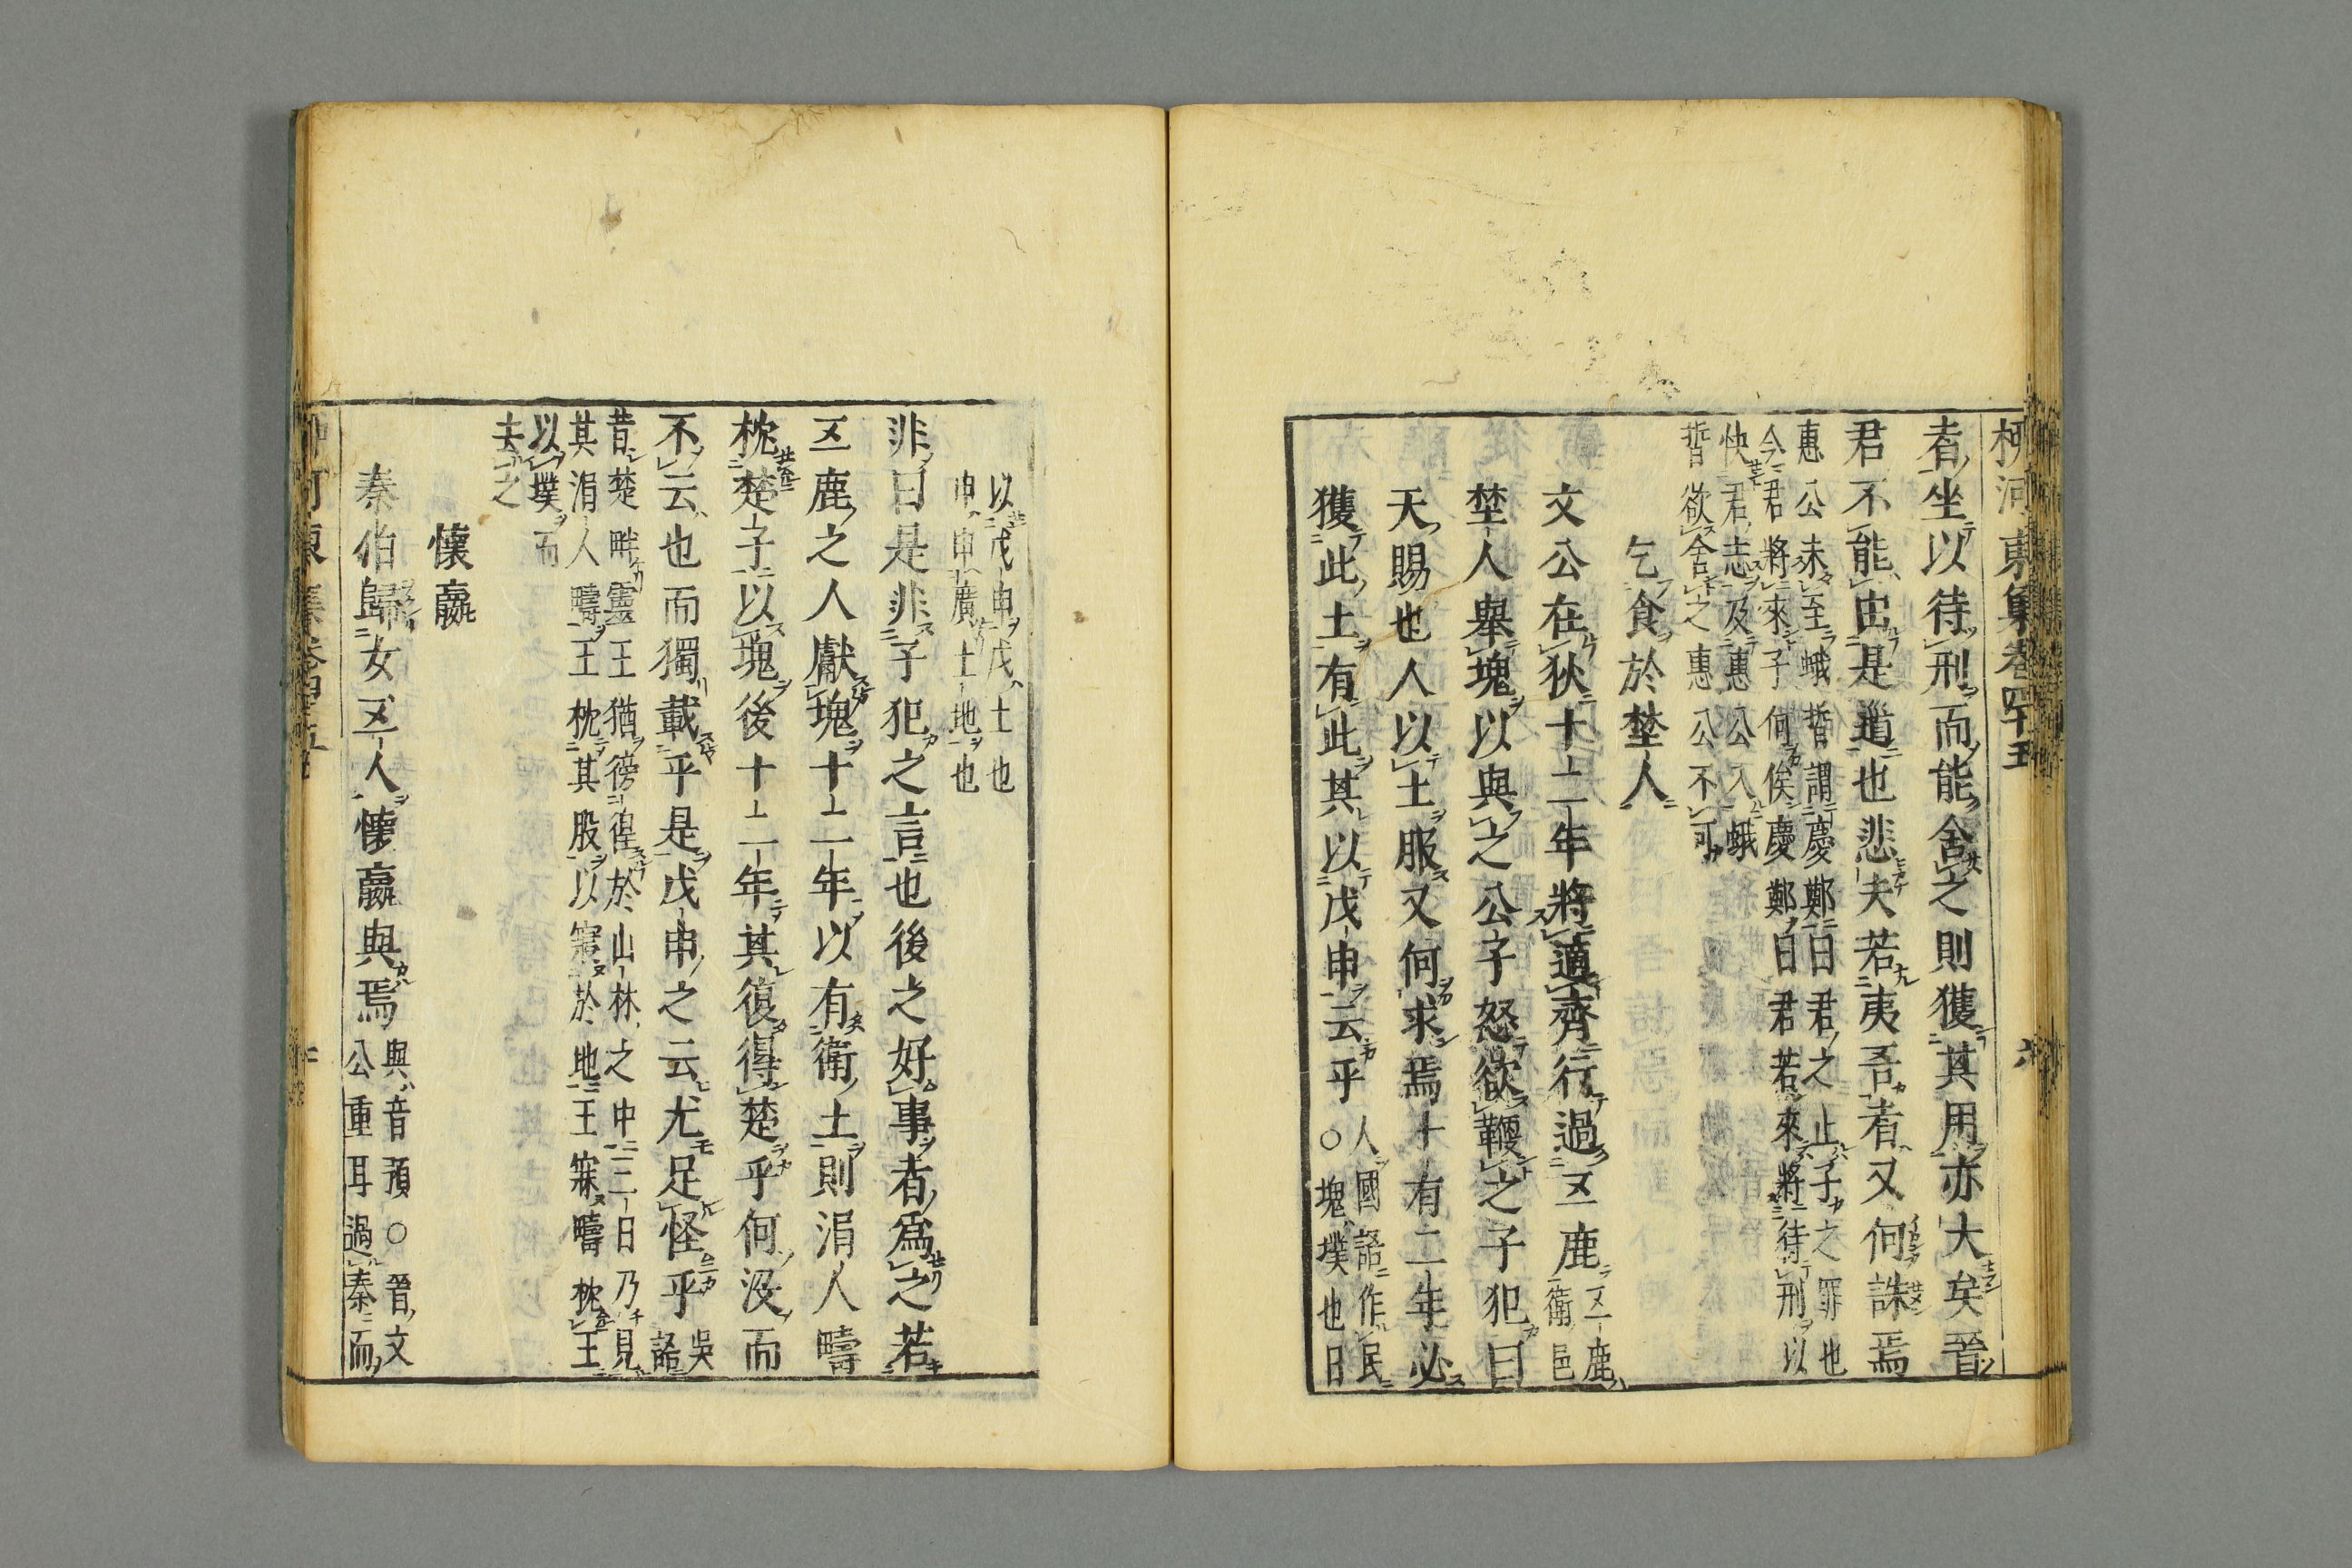 柳河東集卷四十五
六
者坐以待刑而能舍之則獲其用亦大矣晉
君不能出是道也悲夫若夷吾者又何誅焉
惠公未至蛾晳謂慶鄭曰君之止子之罪也
今君將來子何俟慶鄭曰君若來將待刑以
快君志及惠公入蛾
晳欲舍之惠公不可
乞食於埜人
文公在狄十二年將適齊行過五鹿五鹿
衛邑
埜人舉塊以與之公子怒欲鞭之子犯曰
天賜也人以土服又何求焉十有二年必
獲此土有此其以戊申云乎人國語作民
○塊墣也曰
以戊申戊土也
申申廣土地也
非曰是非子犯之言也後之好事者爲之若
五鹿之人獻塊十二年以有衛土則涓人疇
枕楚子以塊後十二年其復得楚乎何沒而
不云也而獨載乎是戊申之云尤足怪乎吳
語
昔楚畔靈王猶徬徨於山林之中三日乃見
其涓人疇王枕其股以寢於地王寐疇枕王
以墣而
去之
懷嬴
秦伯歸女五人懷嬴與焉與音預○晉文
公重耳過秦而